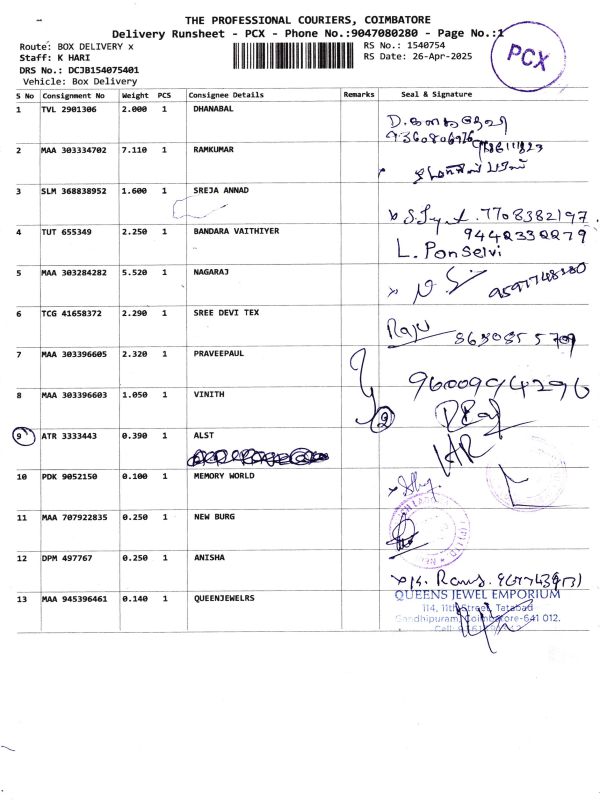 THE PROFESSIONAL COURIERS, COIMBATORE
Delivery Runsheet - PCX - Phone No.:9047080280 - Page No.:1
Route: BOX DELIVERY x
RS No.: 1540754
Staff: K HARI
RS Date: 26-Apr-2025
DRS No.: DCJB154075401
Vehicle: Box Delivery
PCX
S No Consignment No Weight PCS Consignee Details Remarks Seal & Signature
1 TVL 2901306 2.000 1 DHANABAL
2 MAA 303334702 7.110 1 RAMKUMAR
3 SLM 368838952 1.600 1 SREJA ANNAD
7708382197
4 TUT 655349 2.250 1 BANDARA VAITHIYER
9442332279
L. Ponselvi
5 MAA 303284282 5.520 1 NAGARAJ
6 TCG 41658372 2.290 1 SREE DEVI TEX
Raju
7 MAA 303396605 2.320 1 PRAVEEPAUL
8 MAA 303396603 1.050 1 VINITH
2
9 ATR 3333443 0.390 1 ALST
10 PDK 9052150 0.100 1 MEMORY WORLD
11 MAA 707922835 0.250 1 NEW BURG
12 DPM 497767 0.250 1 ANISHA
13 MAA 945396461 0.140 1 QUEENJEWELRS
QUEENS JEWEL EMPORIUM
114, 11th Street, Tatabad
Gandhipuram, Coimbatore-641 012.